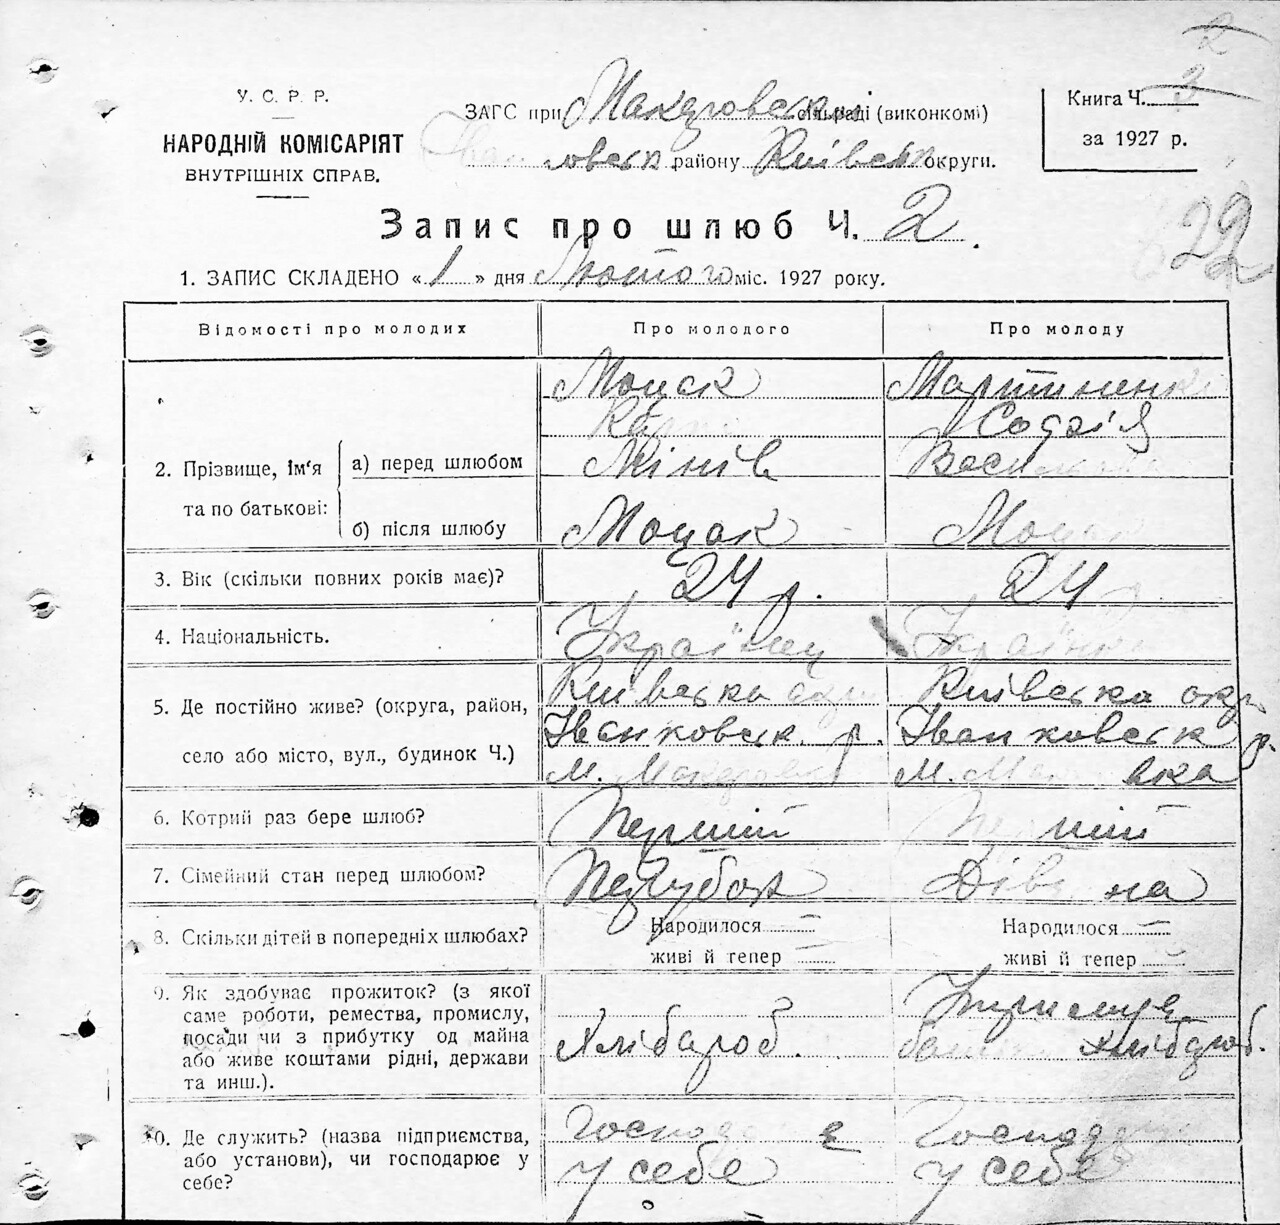 2
3
У. С. Р. Р.
НАРОДНІЙ КОМІСАРІЯТ
ВНУТРІШНІХ СПРАВ.
ЗАГС при сільраді (виконкомі)
району Київськ округи.
Книга Ч. 3
за 1927 р.
Запис про шлюб Ч. 2.
22
1. ЗАПИС СКЛАДЕНО « 1 » дня Лютого міс. 1927 року.
Відомості про молодих Про молодого Про молоду
Моцак Мартиненко
Софія
2. Прізвище, ім'я та по батькові: а) перед шлюбом
б) після шлюбу Моцак Моцак
3. Вік (скільки повних років має)? 24 р. 24 р
4. Національність. Українец Українка
5. Де постійно живе? (округа, район, Київська окр Київська окр
село або місто, вул., будинок Ч.) Іванковськ. р. Іванковськ р.
6. Котрий раз бере шлюб? Перший Перший
7. Сімейний стан перед шлюбом? Дівчина
8. Скільки дітей в попередніх шлюбах? Народилося — Народилося —
живі й тепер — живі й тепер —
9. Як здобуває прожиток? (з якої
саме роботи, ремества, промислу,
посади чи з прибутку од майна
або живе коштами рідні, держави
та инш.). Хлібароб. Хлібароб.
10. Де служить? (назва підприємства,
або установи), чи господарює у
себе? у себе у себе